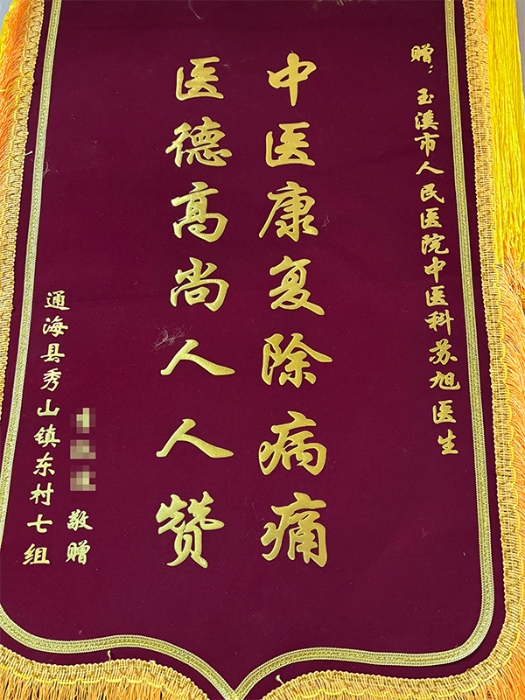 赠：玉溪市人民医院中医科苏旭医生
中医康复除病痛
医德高尚人人赞
敬赠
通海县秀山镇东村七组